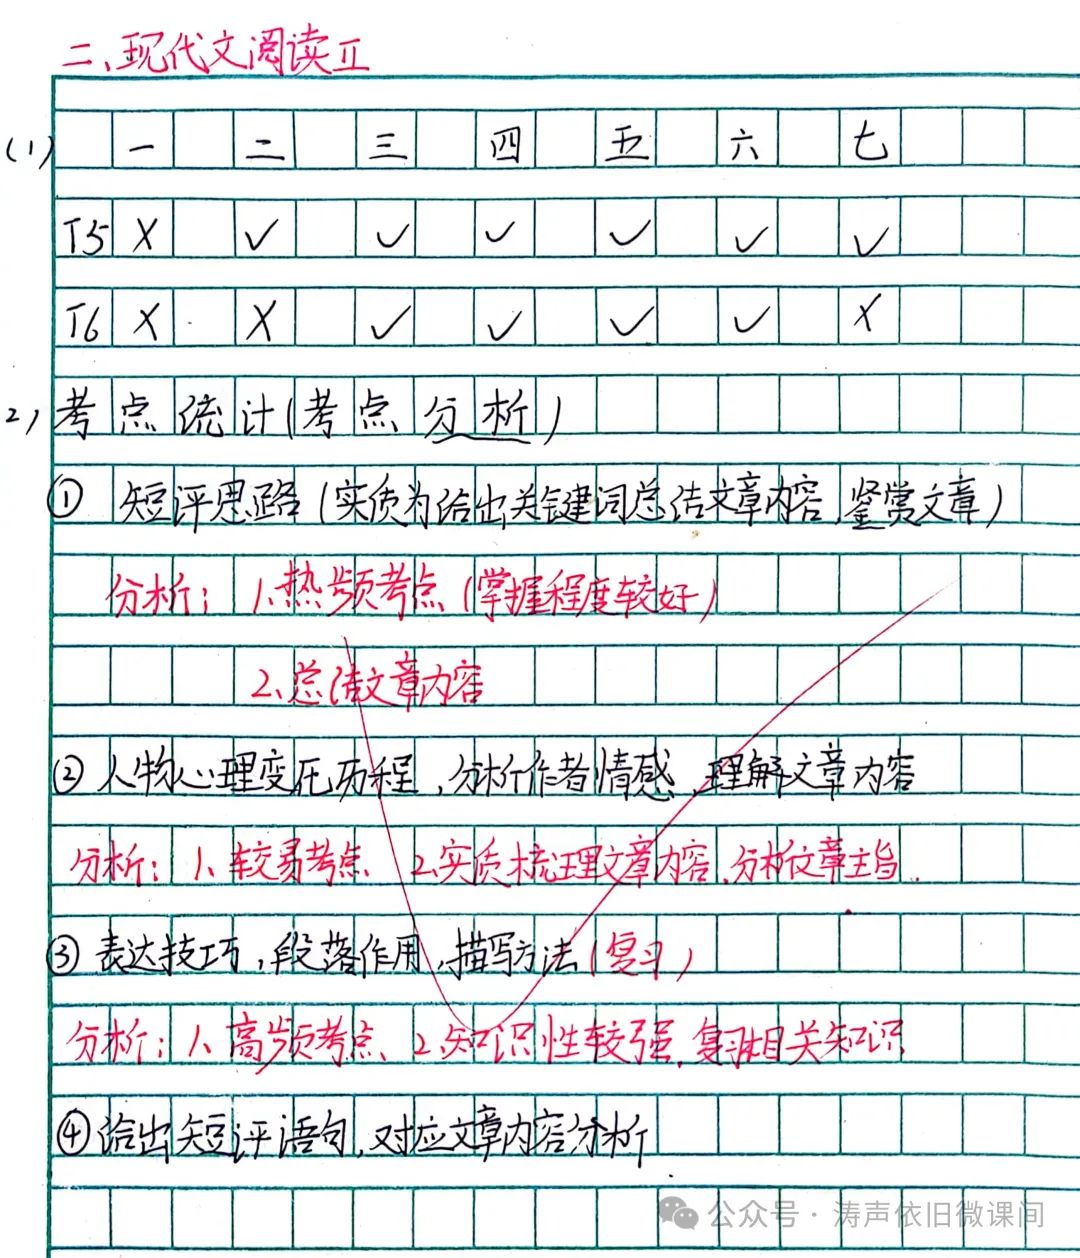 二、现代文阅读Ⅱ
(1) 一 二 三 四 五 六 七
T5 × ✓ ✓ ✓ ✓ ✓ ✓
T6 × × ✓ ✓ ✓ ✓ ×
2) 考点统计(考点分析)
① 短评思路(实质为给出关键词总结文章内容,鉴赏文章)
分析: 1、热频考点(掌握程度较好)
2、总结文章内容
② 人物心理变化历程,分析作者情感,理解文章内容
分析: 1、较易考点、2、实质梳理文章内容,分析文章主旨.
③ 表达技巧,段落作用,描写方法(复习)
分析: 1、高频考点、2、知识性较强,复习相关知识
④ 给出短评语句,对应文章内容分析
公众号·涛声依旧微课间